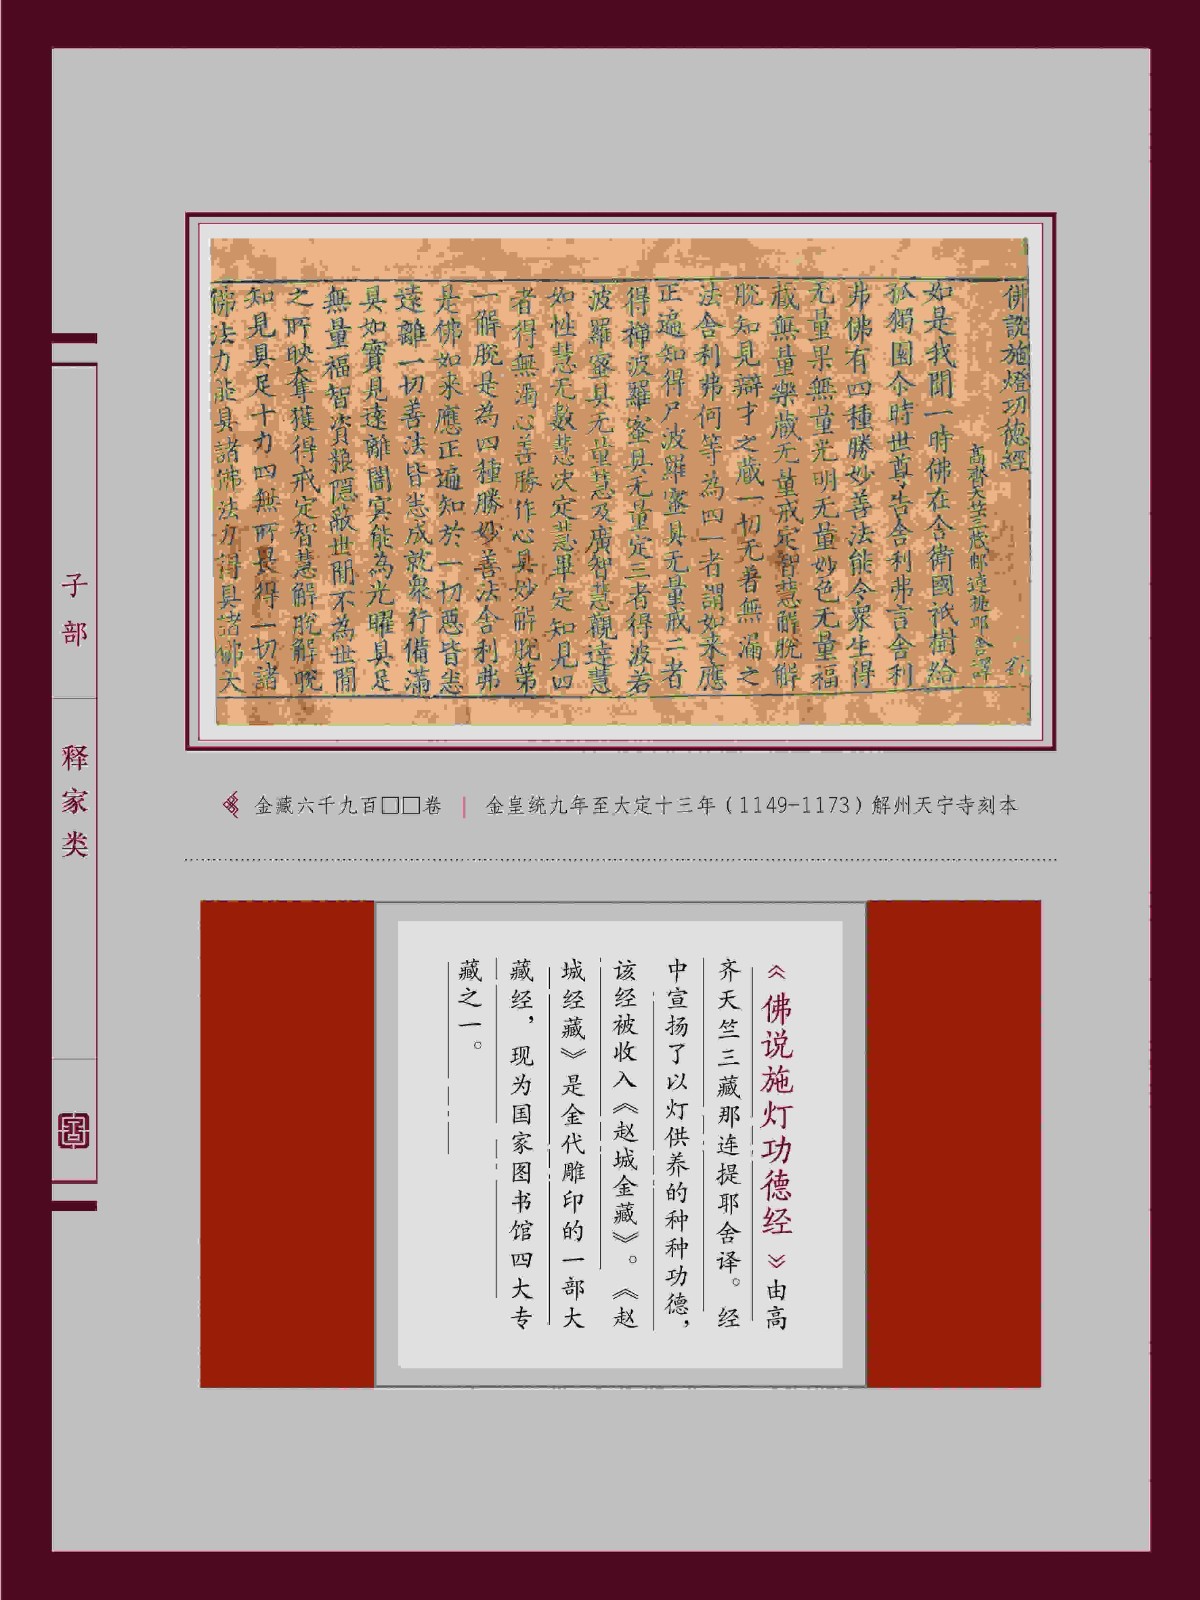 佛説施燈功德經
高齊天竺三藏那連提耶舍譯
如是我聞一時佛在舍衛國祇樹給
孤獨園尒時世尊告舍利弗言舍利
弗佛有四種勝妙善法能令衆生得
无量果無量光明无量妙色无量福
藏無量樂藏无量戒定智慧解脫解
脫知見辯才之藏一切无著無漏之
法舍利弗何等為四一者謂如来應
正遍知得尸波羅蜜具无量戒二者
得禪波羅蜜具无量定三者得波若
波羅蜜具无量慧及廣智慧觀達慧
如性慧无數慧决定慧畢定知見四
者得無濁心善勝作心具妙解脫第
一解脫是為四種勝妙善法舍利弗
是佛如来應正遍知於一切惡皆悉
遠離一切善法皆悉成就衆行備滿
具如實見遠離闇冥能為光曜具足
無量福智資粮隱蔽世間不為世間
之所映奪獲得戒定智慧解脫解脫
知見具足十力四無所畏得一切諸
佛法力能具諸佛法力得具諸佛大
金藏六千九百□□卷 | 金皇统九年至大定十三年（1149-1173）解州天宁寺刻本
子部
释家类
《佛说施灯功德经》由高
齐天竺三藏那连提耶舍译。经
中宣扬了以灯供养的种种功德，
该经被收入《赵城金藏》。《赵
城经藏》是金代雕印的一部大
藏经，现为国家图书馆四大专
藏之一。